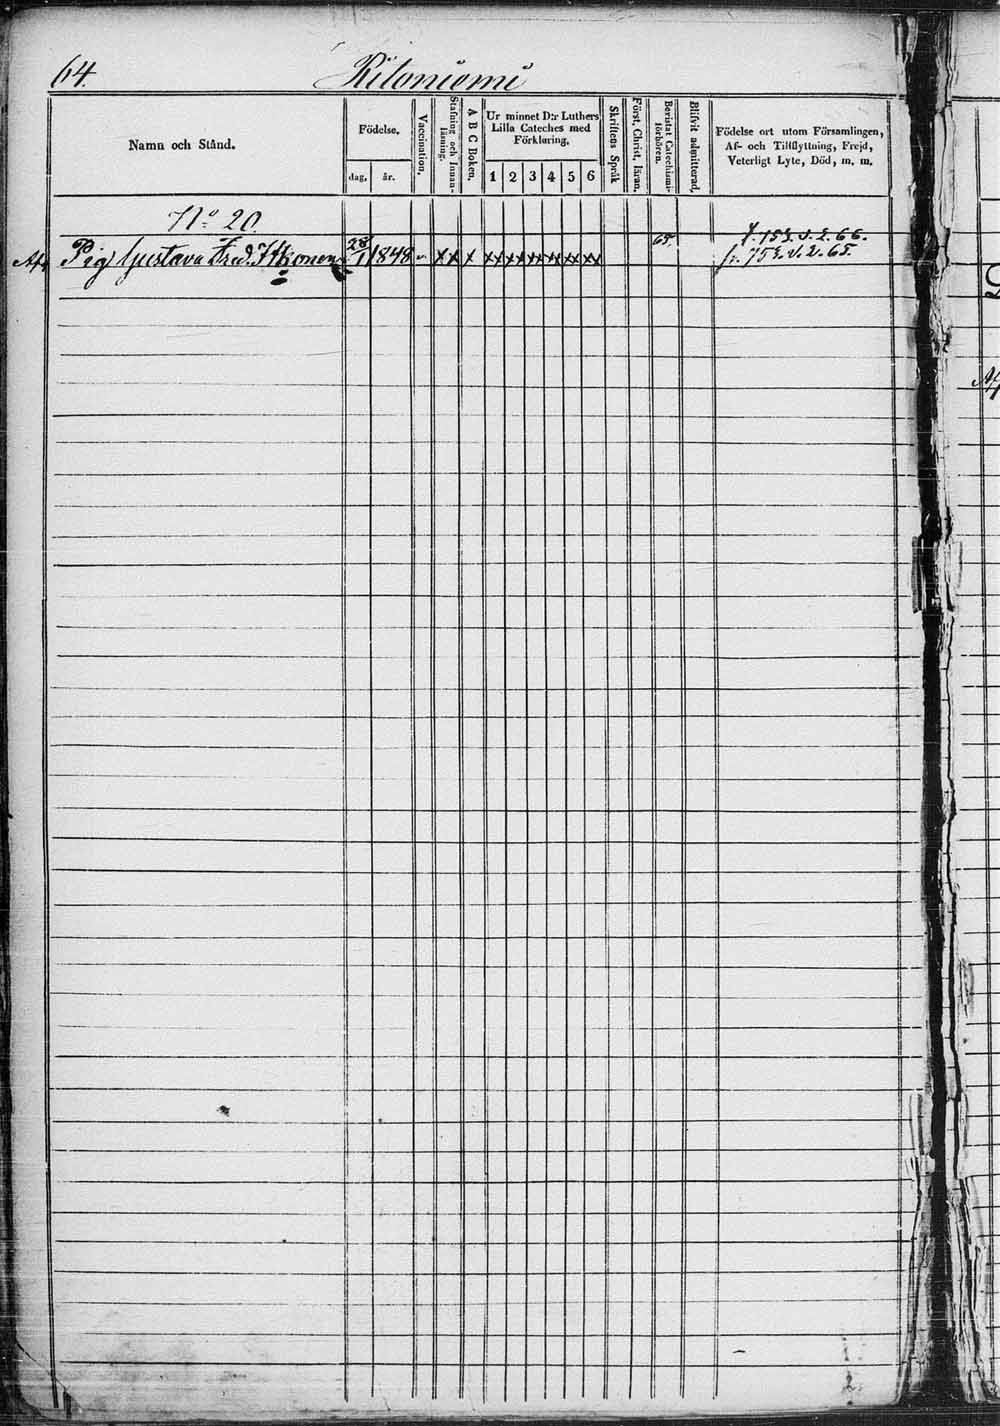 64. Kiloniemi
Namn och Stånd.
Födelse.
dag,
år.
Vaccination.
Stafning och Innan-
läsning.
A B C Boken.
Ur minnet D:r Luthers
Lilla Cateches med
Förklaring.
1 2 3 4 5 6
Skriftens Språk
Först. Christ. läran.
Bevistat Catechismi-
förhören.
Blifvit admitterad.
Födelse ort utom Församlingen,
Af- och Tillflyttning, Frejd,
Veterligt Lyte, Död, m. m.
No 20.
Pig Gustava Fred. Itkonen 28/1 1848 v x x x xx xx xx xx xx xx 65.